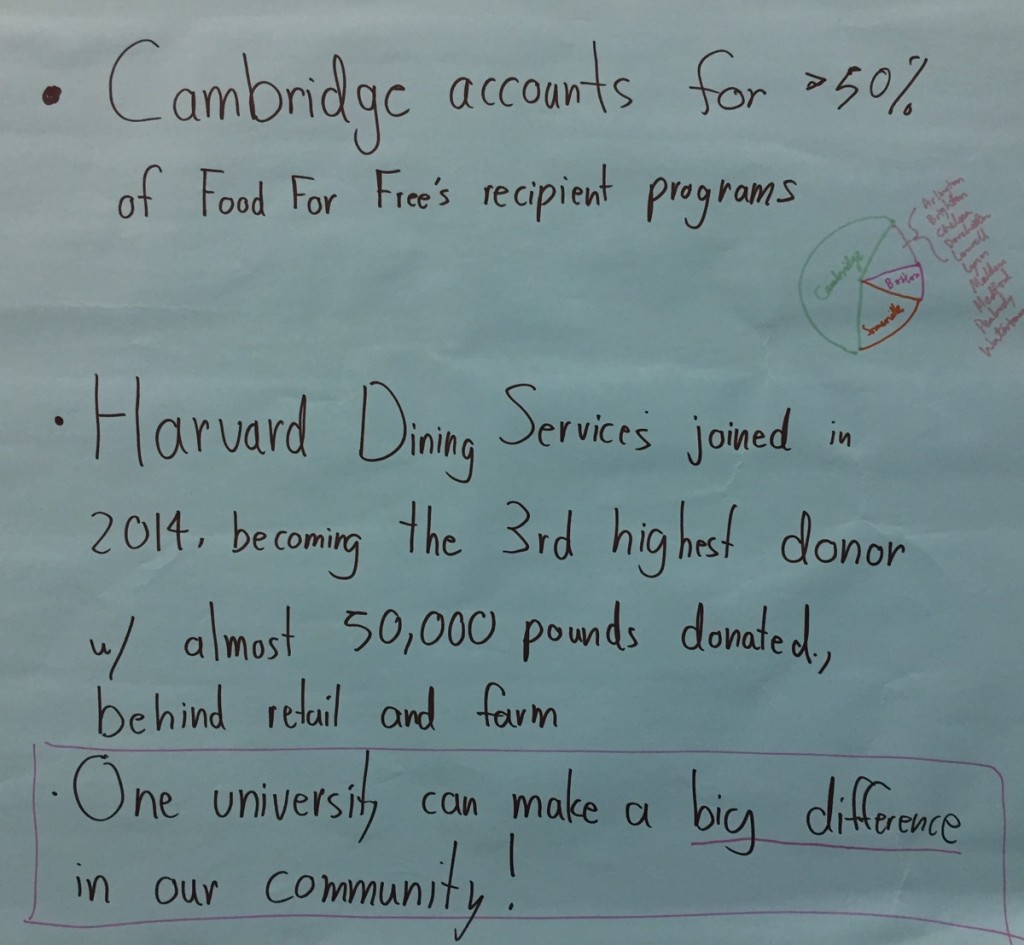 • Cambridge accounts for >50%
of Food For Free's recipient programs
Cambridge
Boston
Somerville
Arlington
Brighton
Chelsea
Dorchester
Lowell
Lynn
Malden
Medford
Peabody
Watertown
• Harvard Dining Services joined in
2014, becoming the 3rd highest donor
w/ almost 50,000 pounds donated,
behind retail and farm
• One university can make a big difference
in our community!